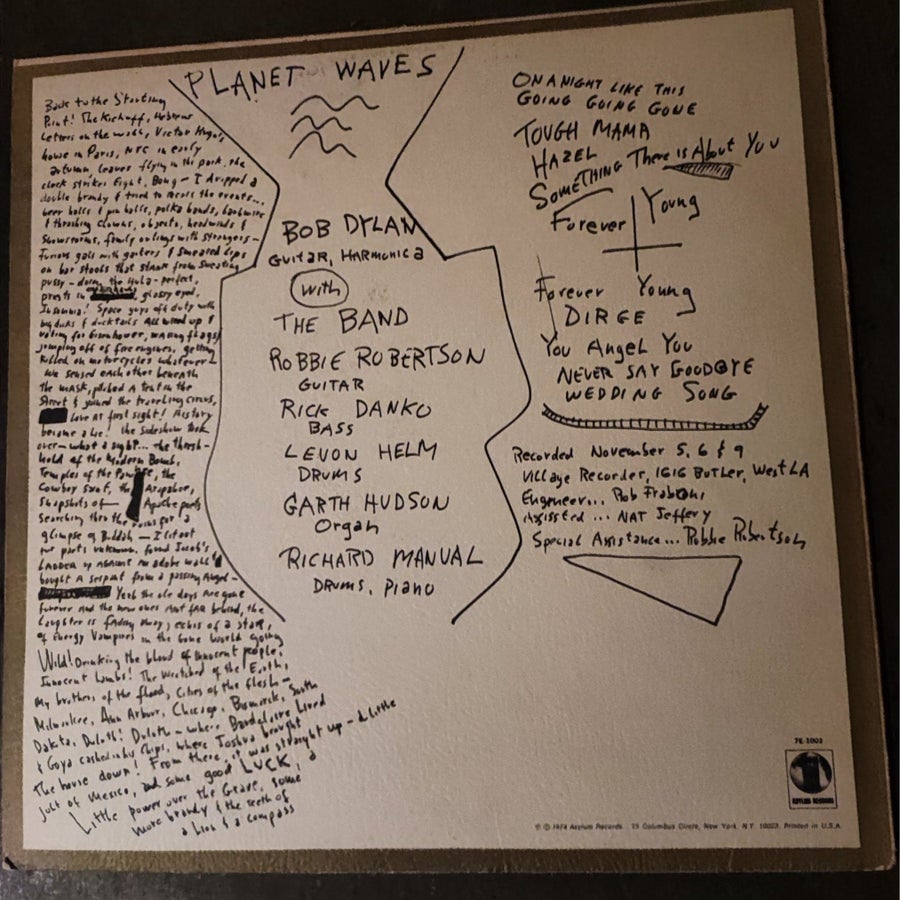 PLANET WAVES
Back to the Starting
Point! The Kickoff, Hebrew
Letters on the wall, Victor Hugo's
house in Paris, NYC in early
autumn, leaves flying in the park, the
clock strikes Eight, Bong - I dropped a
double brandy & tried to recall the events...
beer halls & pin balls, polka bands, barbwire
& thrashing clowns, objects, headwinds &
Snowstorms, family outings with strangers -
Furious gals with garters & smeared lips
on bar stools that stank from sweating
pussy - doing the Hula - perfect,
priests in glassy eyed,
Insomnia! Space guys off duty with
big dicks & ducktails All wired up &
voting for Eisenhower, waving flags &
jumping off of fire engines, getting
killed on motorcycles whatever -
We sensed each other beneath
the mask, pitched a tent in the
Street & joined the traveling circus,
love at first sight! History
became a lie! the sideshow took
over - what a sight... the thresh-
hold of the Modern Bomb,
Temples of the Pawnee, the
Cowboy Saint, the Arapahoe,
Snapshots of Apache poets
Searching thru the ruins for a
glimpse of Buddah - I lit out
for parts unknown, found Jacob's
LADDER up AGAINST AN adobe wall &
bought A serpent from a passing Angel -
Yeah the ole days Are gone
forever And the new ones Aint fAR behind, the
Laughter is fAding away, echos of a staR,
of Energy Vampires in the Gone World going
Wild! Drinking the blood of innocent people,
Innocent Lambs! The Wretched of the Earth,
My brothers of the flood, Cities of the flesh -
Milwaukee, Ann Arbor, Chicago, Bismarck, South
Dakota, Duluth! Duluth - where Baudelaire Lived
& Goya cashed in his Chips, where Joshua brought
The house down! From there, it was straight up - a Little
jolt of Mexico, and some good LUCK, a
Little power over the Grave, some
more brandy & the teeth of
a Lion & a compass
BOB DYLAN
GUITAR, HARMONICA
With
THE BAND
ROBBIE ROBERTSON
GUITAR
RICK DANKO
BASS
LEVON HELM
DRUMS
GARTH HUDSON
Organ
RICHARD MANUAL
DRUMS, PIANO
ON A NIGHT LIKE THIS
GOING GOING GONE
TOUGH MAMA
HAZEL
SOMETHING There is About You
Forever Young
Forever Young
DIRGE
You Angel You
NEVER SAY GOODBYE
WEDDING SONG
Recorded November 5, 6 & 9
Village Recorder, 1616 Butler, West LA
Engineer... Rob Fraboni
Assissted... NAT Jeffery
Special Assistance... Robbie Robertson
7E-1003
ASYLUM RECORDS
℗ © 1974 Asylum Records · 15 Columbus Circle, New York, N.Y. 10023. Printed in U.S.A.